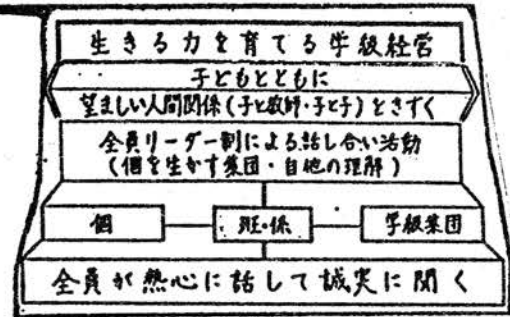 生きる力を育てる学級経営
子どもとともに
望ましい人間関係(子と教師・子と子)ときずく
全員リーダー制による話し合い活動
(個を生かす集団・自他の理解)
個
班・係
学級集団
全員が熱心に話して誠実に聞く